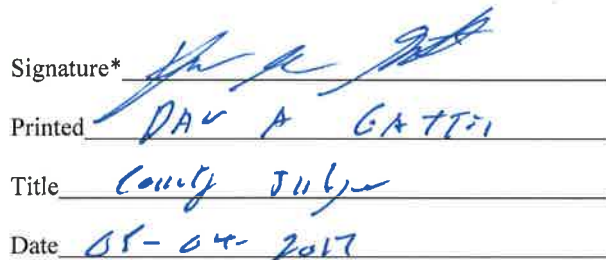 Signature*
Printed DAN A GATTIS
Title County Judge
Date 05-04-2017